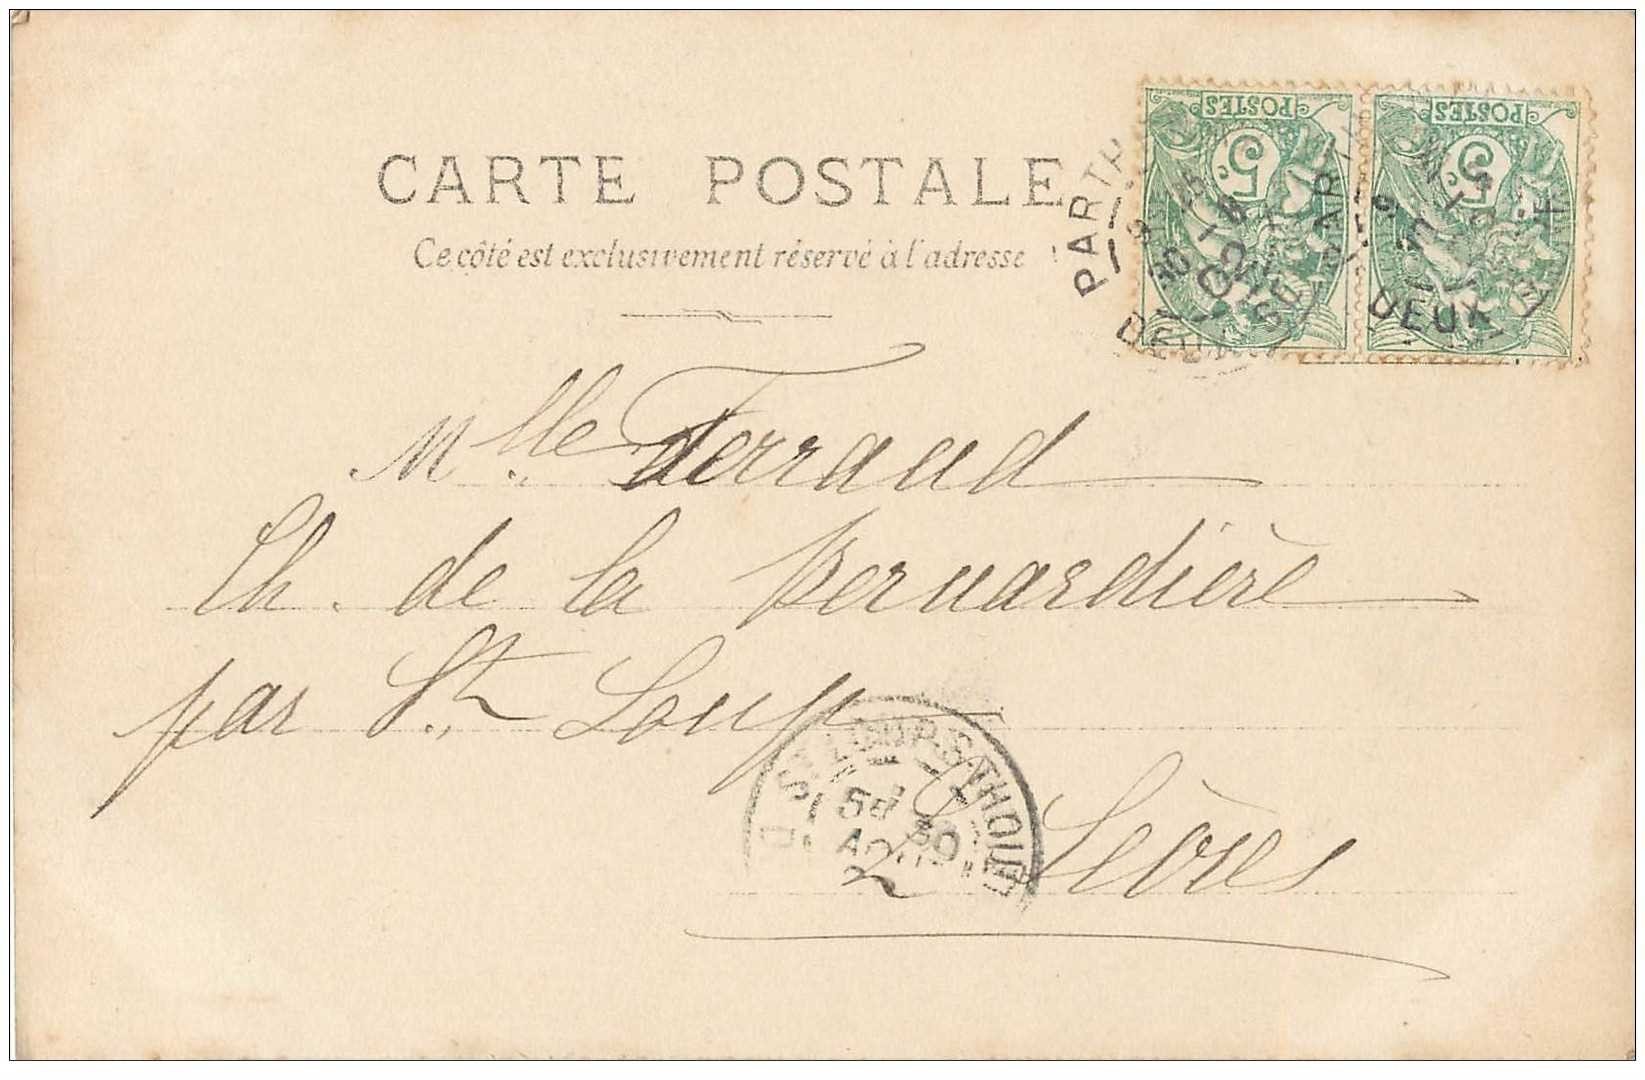 CARTE POSTALE
Ce côté est exclusivement réservé à l'adresse
POSTES POSTES
5c 5c
PARTH
02
DEUX
Mlle Ferrand
Ch. de la Bernardière
par St. Loup
2 Sèvres
ST LOUP-S-THOUET
5E 30
AOUT